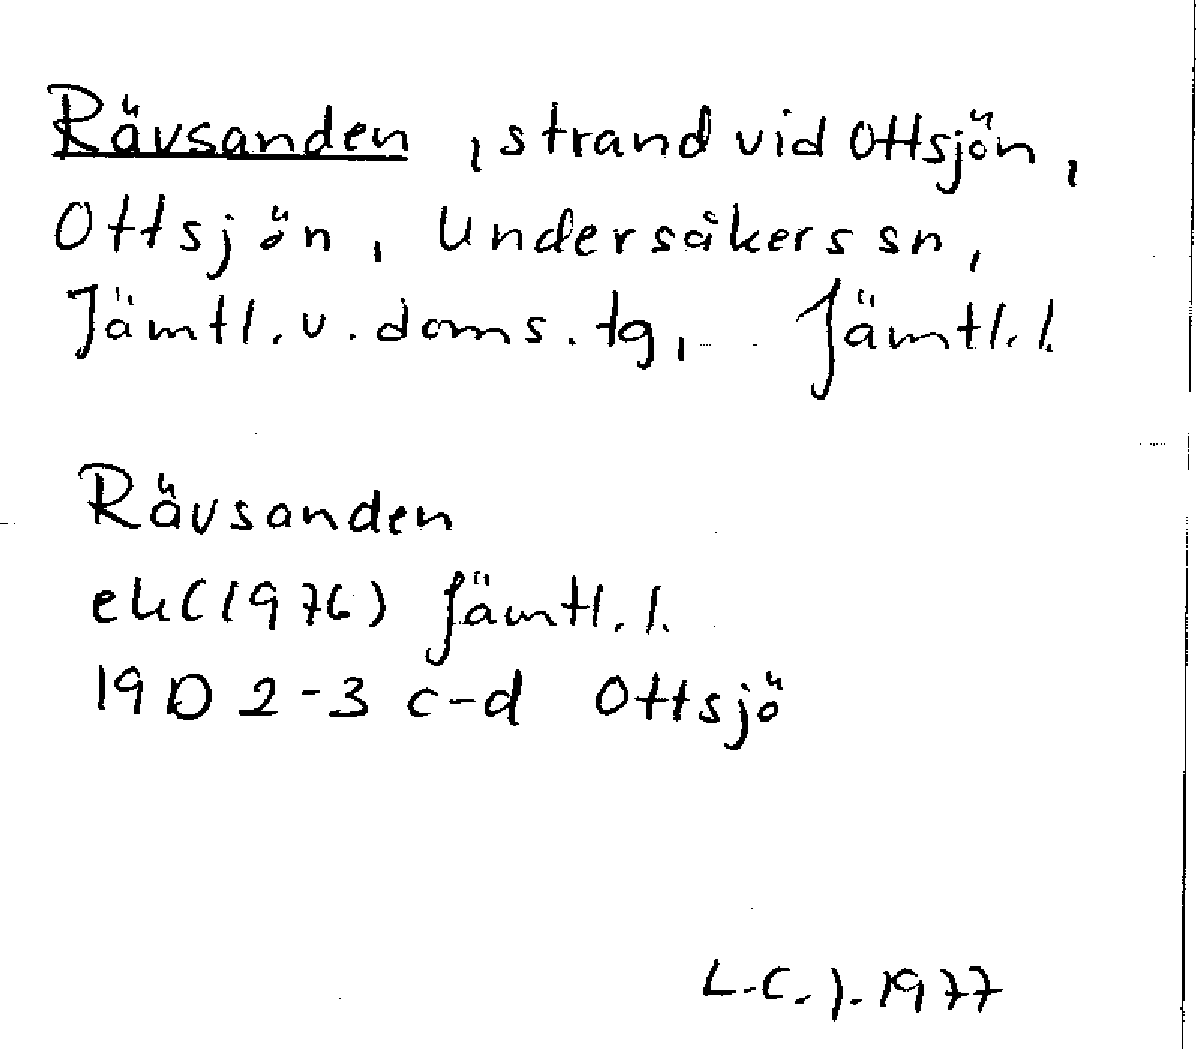 Rävsanden, strand vid Ottsjön,
Ottsjön, Undersåkers sn,
Jämtl. v. doms. tg, Jämtl. l.
Rävsanden
ek (1976) Jämtl. l.
19 D 2-3 c-d Ottsjö
L.C.J. 1977